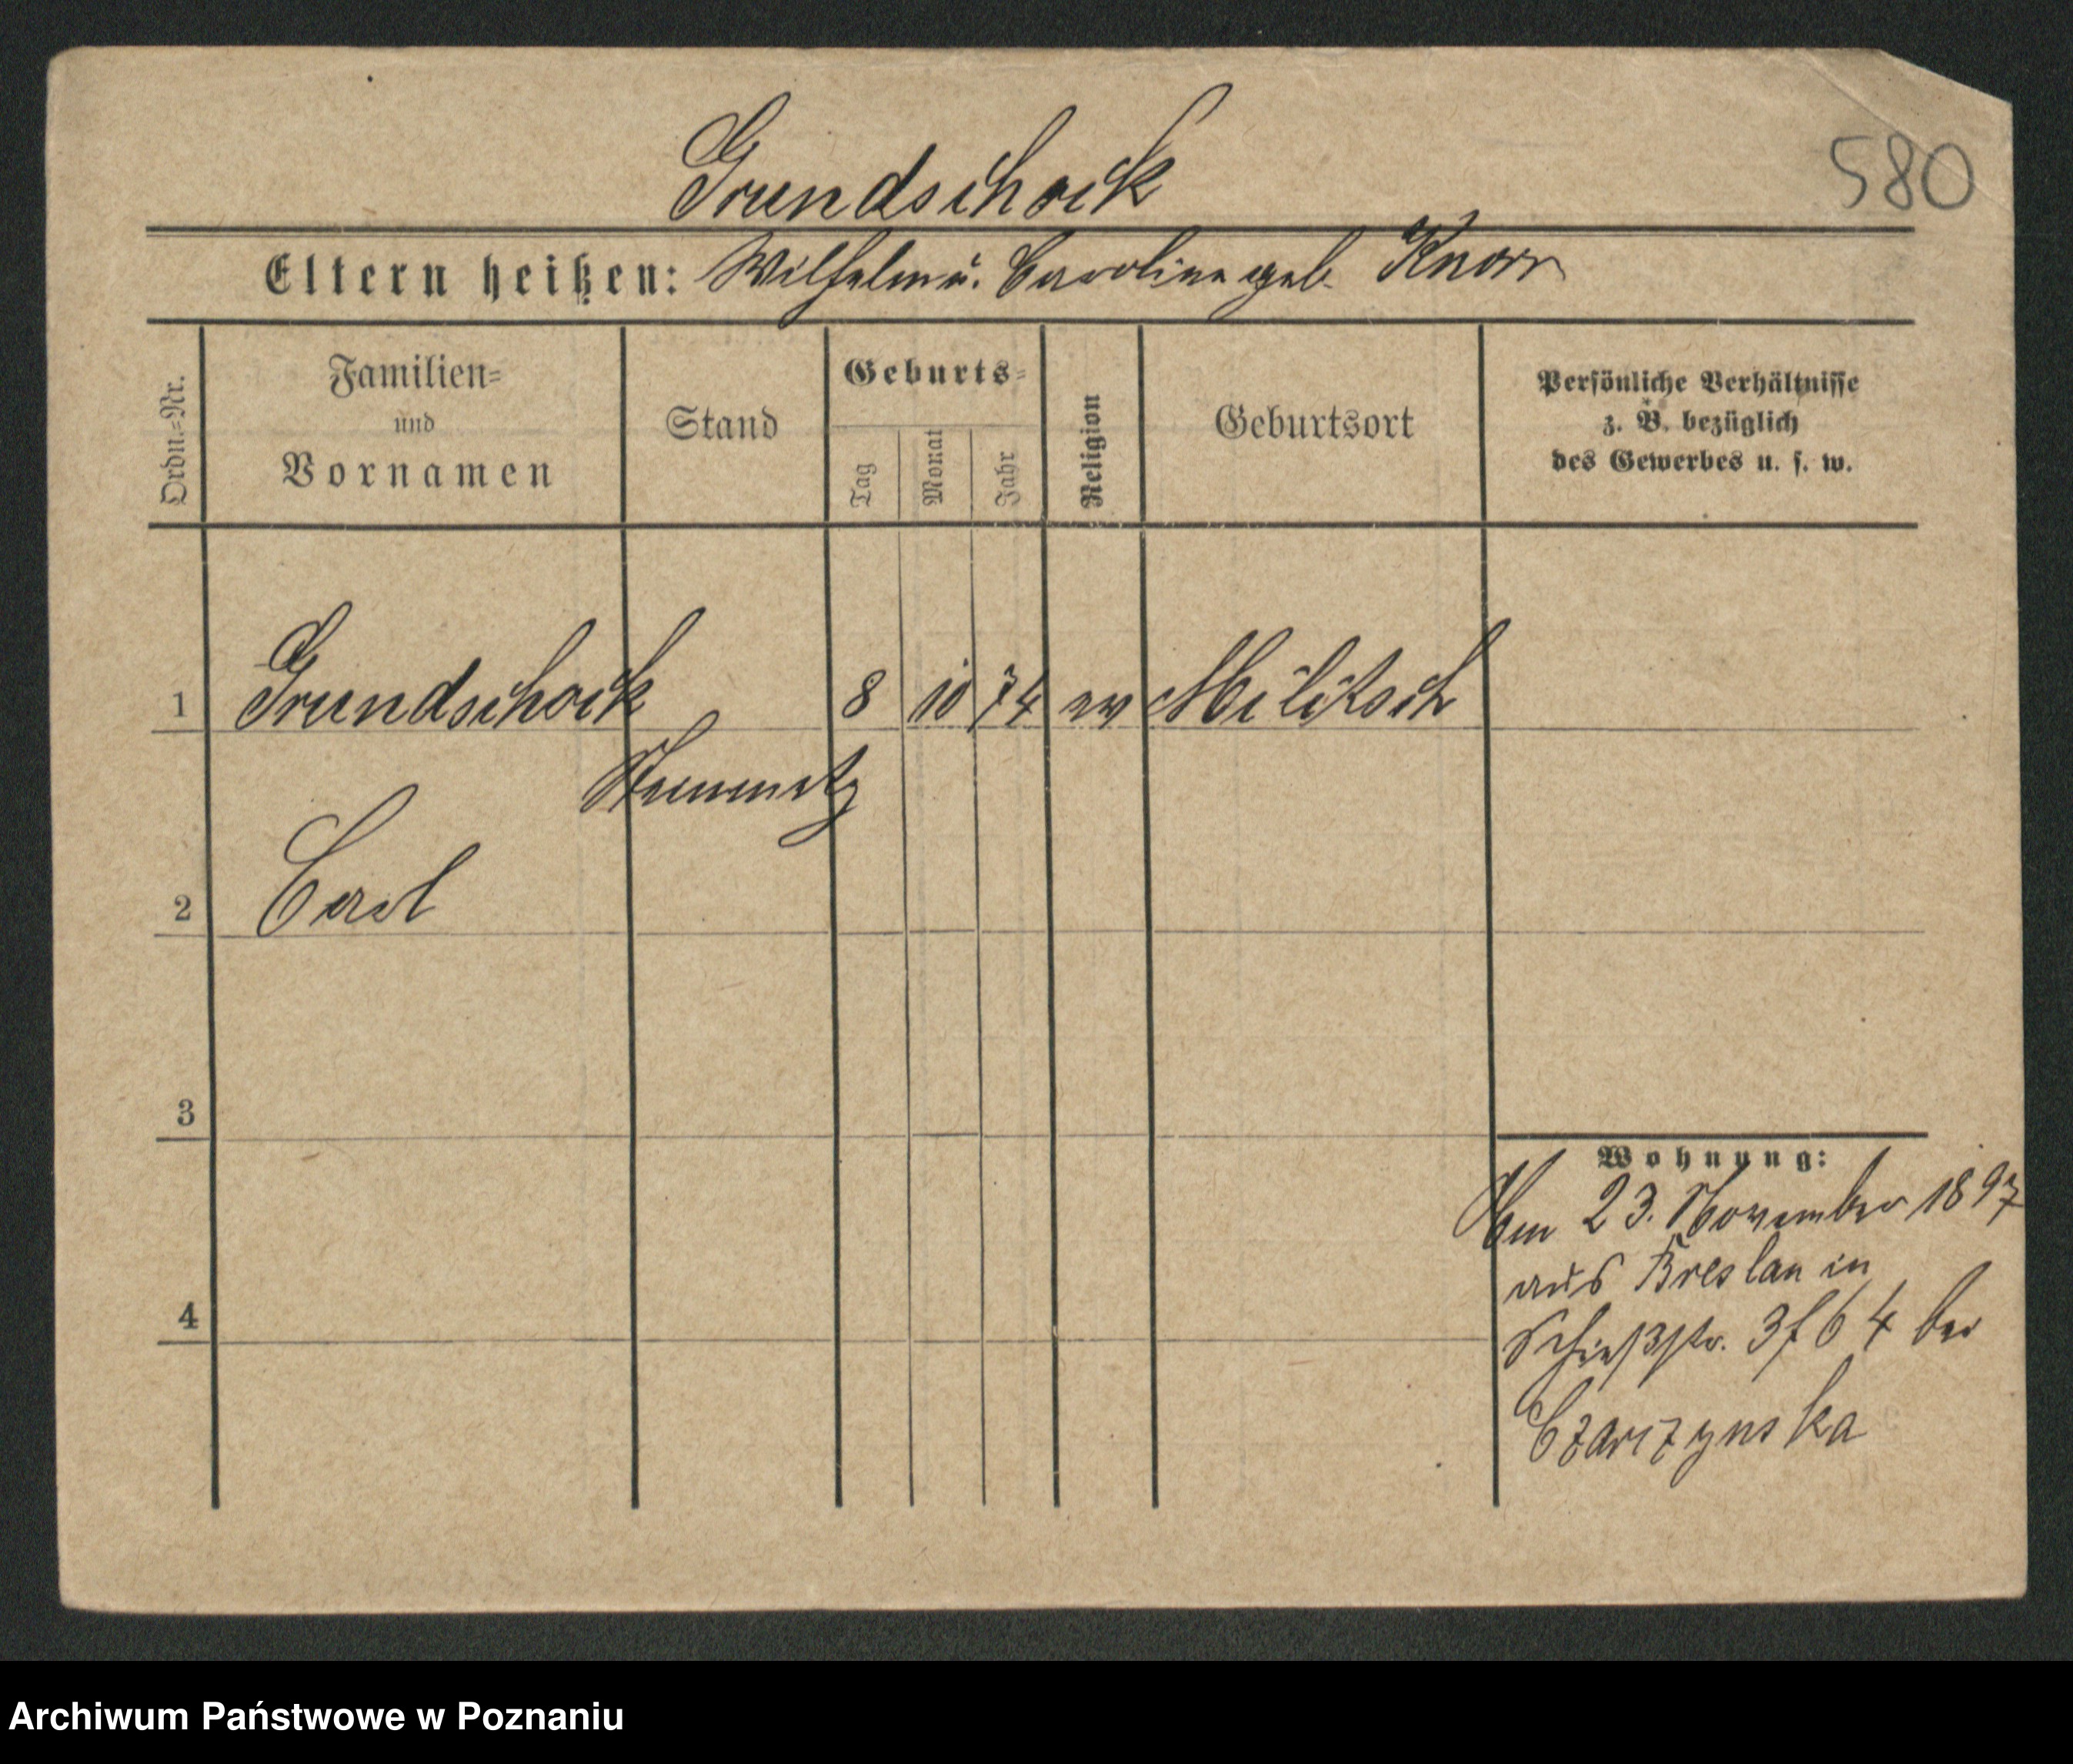 Grundschock
580
Eltern heißen: Wilhelm u. Caroline geb. Knorr
Ordn.-Nr.
Familien-
und
Vornamen
Stand
Geburts-
Tag
Monat
Jahr
Religion
Geburtsort
Persönliche Verhältnisse
z. B. bezüglich
des Gewerbes u. s. w.
1 Grundschock 8 10 74 ev Militsch
Steinmetz
2 Carl
3
Wohnung:
Am 23. November 1897
aus Breslau in
4
Schießstr. 3 f 64 bei
Czarczynska
Archiwum Państwowe w Poznaniu